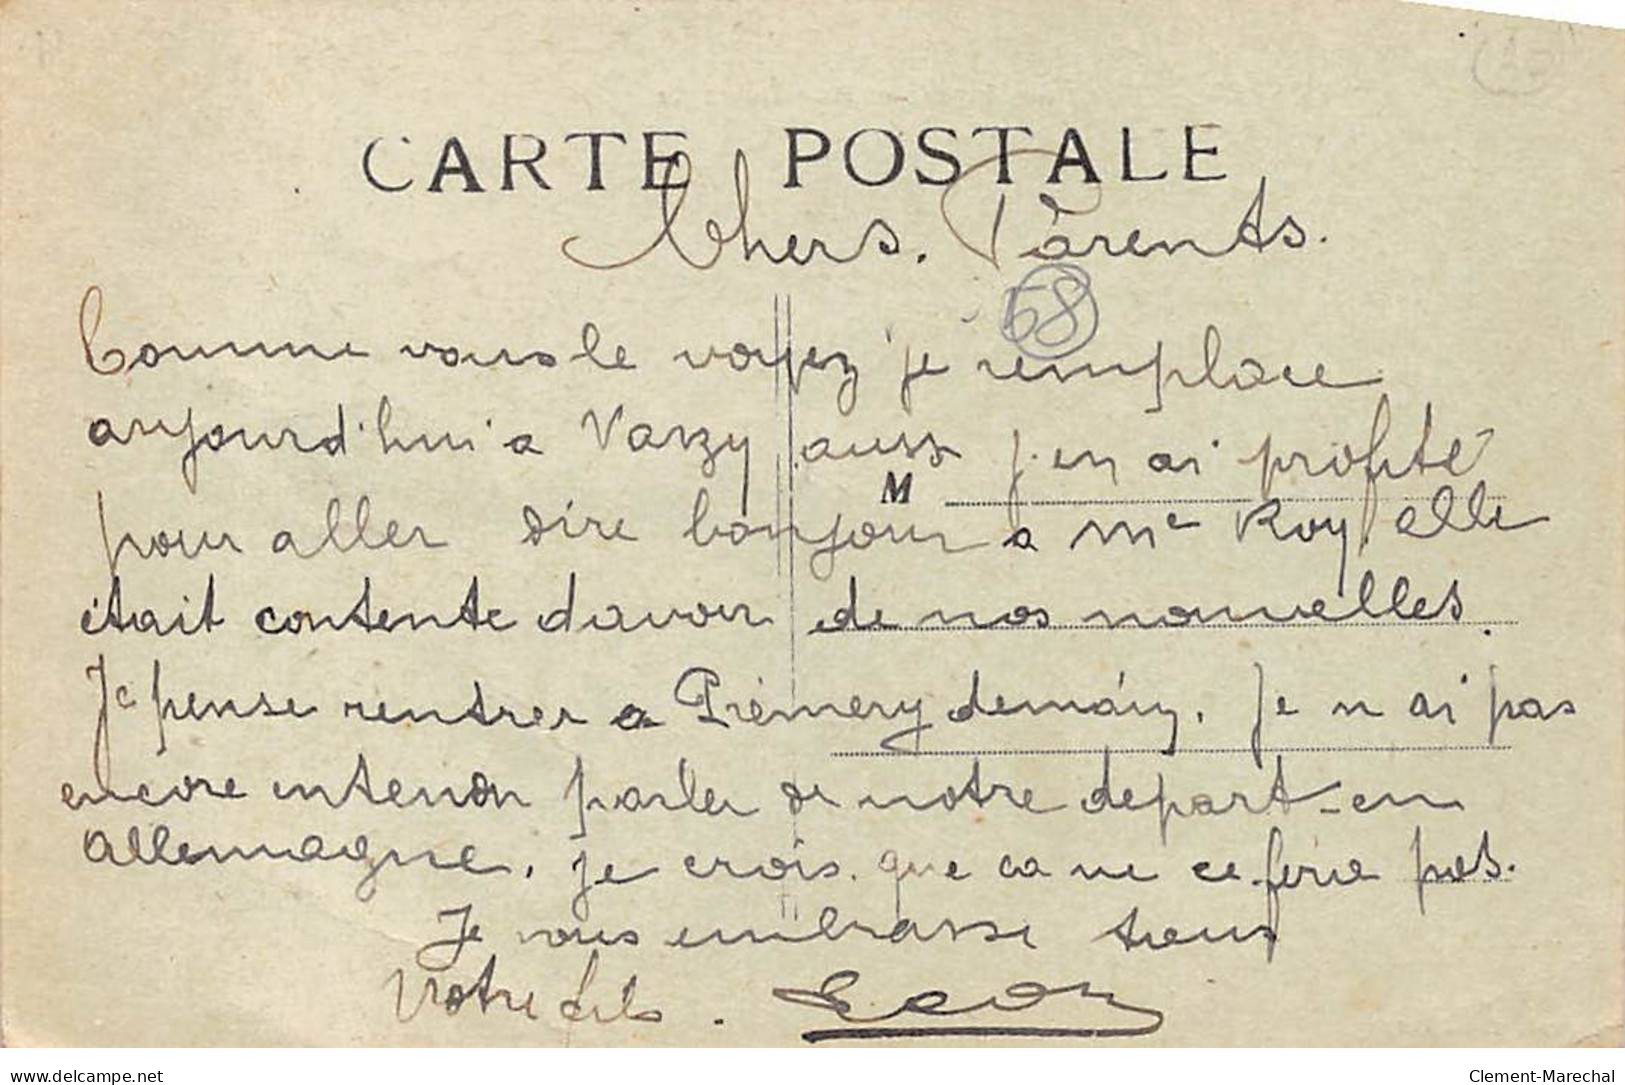 CARTE POSTALE
Chers. Parents.
58
Comme vous le voyez je remplace
aujourd'hui a Varzy aussi j'en ai profité
M
pour aller dire bonjour a Me Roy, elle
était contente davoir de nos nouvelles.
Je pense rentrer a Prémery demain. Je n ai pas
encore entendu parler de notre depart en
Allemagne. je crois que ca ne ce fera pas.
Je vous embrasse tous
Votre fils. Leon
Delcampe.net
Clement-Marechal